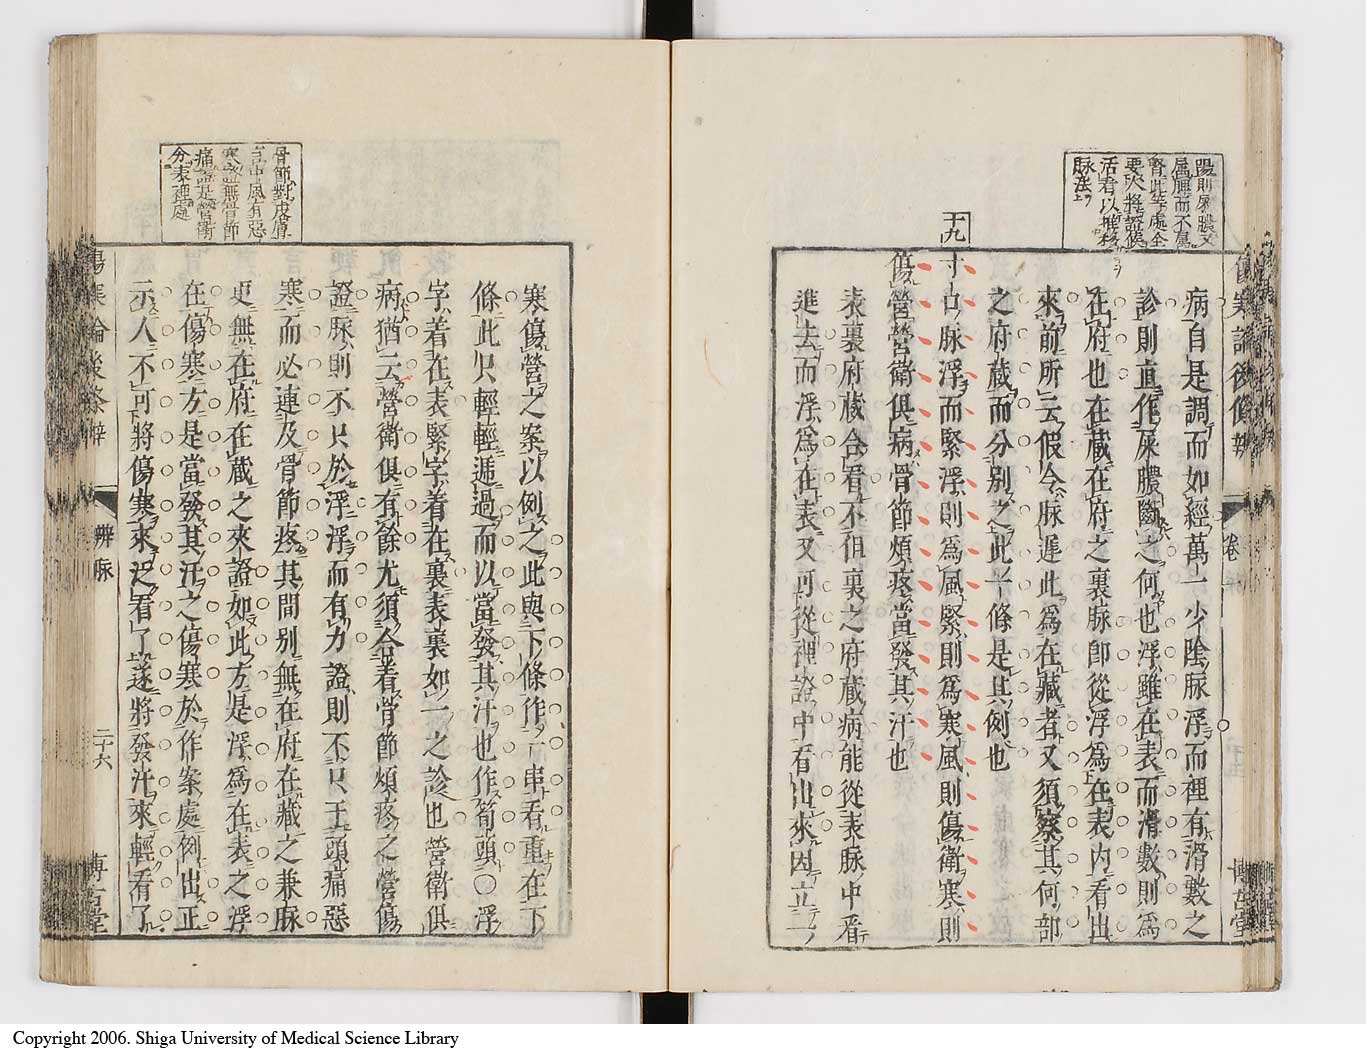 陽則屎膿又
屬腑而不屬
腎此等處全
要人將證候
活看以推移
脉法上
傷寒論後條辨
卷
博古堂
病自是調而如經萬一少陰脉浮而裡有滑數之
診則直作屎膿斷之何也浮雖在表而滑數則爲
在府也在藏在府之裏脉卽從浮爲在表内看出
來前所云假令脉遲此爲在藏者又須察其何部
之府藏而分別之此一條是其例也
十九
寸口脉浮而緊浮則爲風緊則爲寒風則傷衛寒則
傷營營衛俱病骨節煩疼當發其汗也
表裏府藏合看不但裏之府藏病能從表脉中看
進去而浮爲在表又可從裡證中看出來因立一
骨節對皮膚
言中風有惡
寒證無骨節
痛證是營衛
分表裡處
寒傷營之案以例之此與下條作一串看重在下
條此只輕輕遞過而以當發其汗也作筍頭○浮
字着在表緊字着在裏表裏如一之診也營衛俱
病猶云營衛俱有餘尤須合看骨節煩疼之營傷
證脉則不只於浮浮而有力證則不只于頭痛惡
寒而必連及骨節疼其間別無在府在藏之兼脉
更無在府在藏之來證如此方是浮爲在表之浮
在傷寒方是當發其汗之傷寒於作案處例出正
示人不可將傷寒來泛看了遂將發汗來輕看了
傷寒論後條辨
辨脉
二十六
博古堂